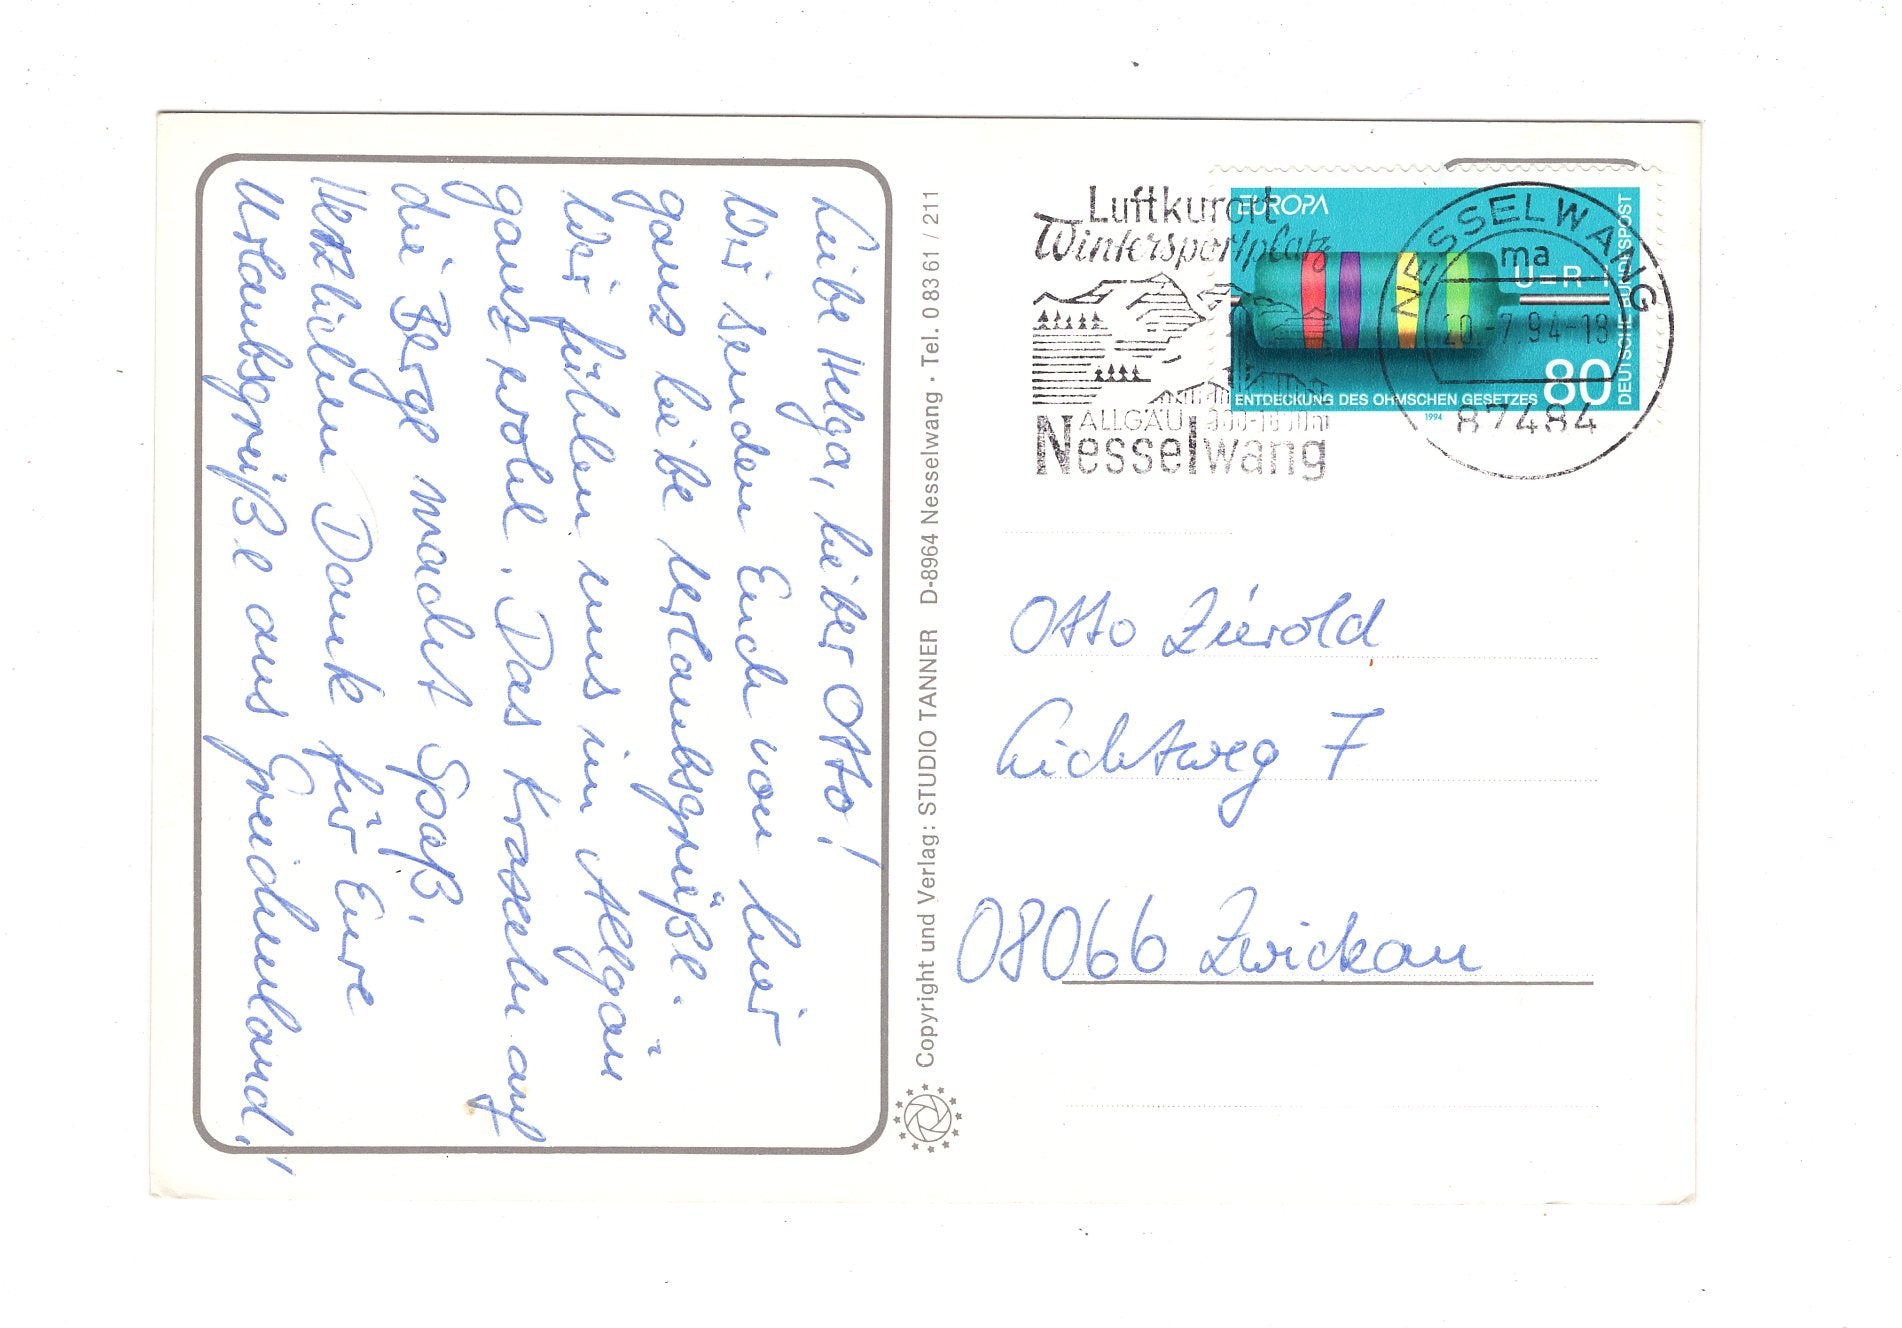 Liebe Helga, lieber Otto!
Wir senden Euch von hier
ganz liebe Urlaubsgrüße.
Wir fühlen uns im Allgäu
ganz wohl. Das Kraxeln auf
die Berge macht Spaß.
Herzlichen Dank für Eure
Urlaubsgrüße aus Griechenland,
Copyright und Verlag: STUDIO TANNER D-8964 Nesselwang · Tel. 0 83 61 / 211
Luftkurort
Wintersportplatz
ALLGÄU 900-1600m
Nesselwang
EUROPA
U=R·I
80
ENTDECKUNG DES OHMSCHEN GESETZES
1994
DEUTSCHE BUNDESPOST
NESSELWANG
ma
20.-7.94-18
87484
Otto Zierold
Lichtweg 7
08066 Zwickau